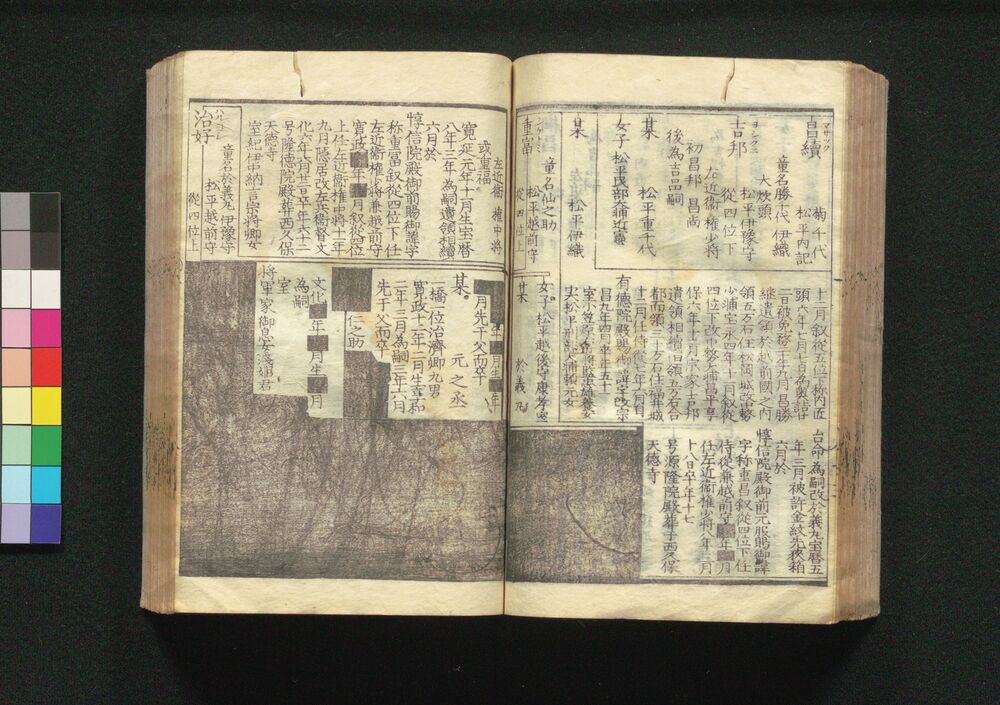 昌續
マサツグ
菊千代
松平内記
童名勝千代 伊織
大炊頭
吉邦
ヨシクニ
松平伊豫守
從四位下
左近衛權少將
初昌邦 昌尚
後為吉品嗣
某
松平重千代
女子 松平民部大輔近憲室
某
松平伊織
十二月叙從五位下称内匠
頭六年七月七日為奥詰
二日被免宝永五年九月昌勝
継遺領於越前國之内
領五万石住松岡城改務
少輔宝永四年十一月叙從
四位下改中務大輔享
保六年十二月宗家吉邦
遺領相續旧領五万石合
都而領三十万石住福井城
十二月任侍從七年
有德院殿賜御諱字改宗
昌九年四月卒年五十
室小笠原
実松平刑部大輔頼元女
女子 松平越後守康孝室
某
於義丸
台命為嗣改於義丸宝暦五
年三月被許金紋先挾箱
六月於
惇信院殿御前元服賜御諱
字称重昌叙從四位下任
侍從兼越前守■年■月
任左近衛權少將八年三月
十八日卒年十七
号源隆院殿葬于西久保
天德寺
重富
童名仙之助
松平越前守
從四位上
左近衛權中將
或重福
寛延元年十月生宝暦
八年三年為嗣遺領相續
六月於
惇信院殿御前賜御諱字
称重富叙從四位下任
左近衛權少將兼越前守
寛政■年■月叙從四位
上任左近衛權中將十一年
九月隠居改左兵衛督文
化六年七月七日卒年六十二
号隆德院殿葬西久保
天德寺
室紀伊中納言宗將卿女
治好
ハルヨシ
童名於義丸 伊豫守
松平越前守
從四位上
■年■月生■年
■月先于父而卒
某
元之丞
一橋位治濟卿九男
寛政十一年二月生享和
二年三月為嗣三年六月
先于父而卒
仁之助
文化■年■月生■月
為嗣
室
將軍家御息女淺姫君